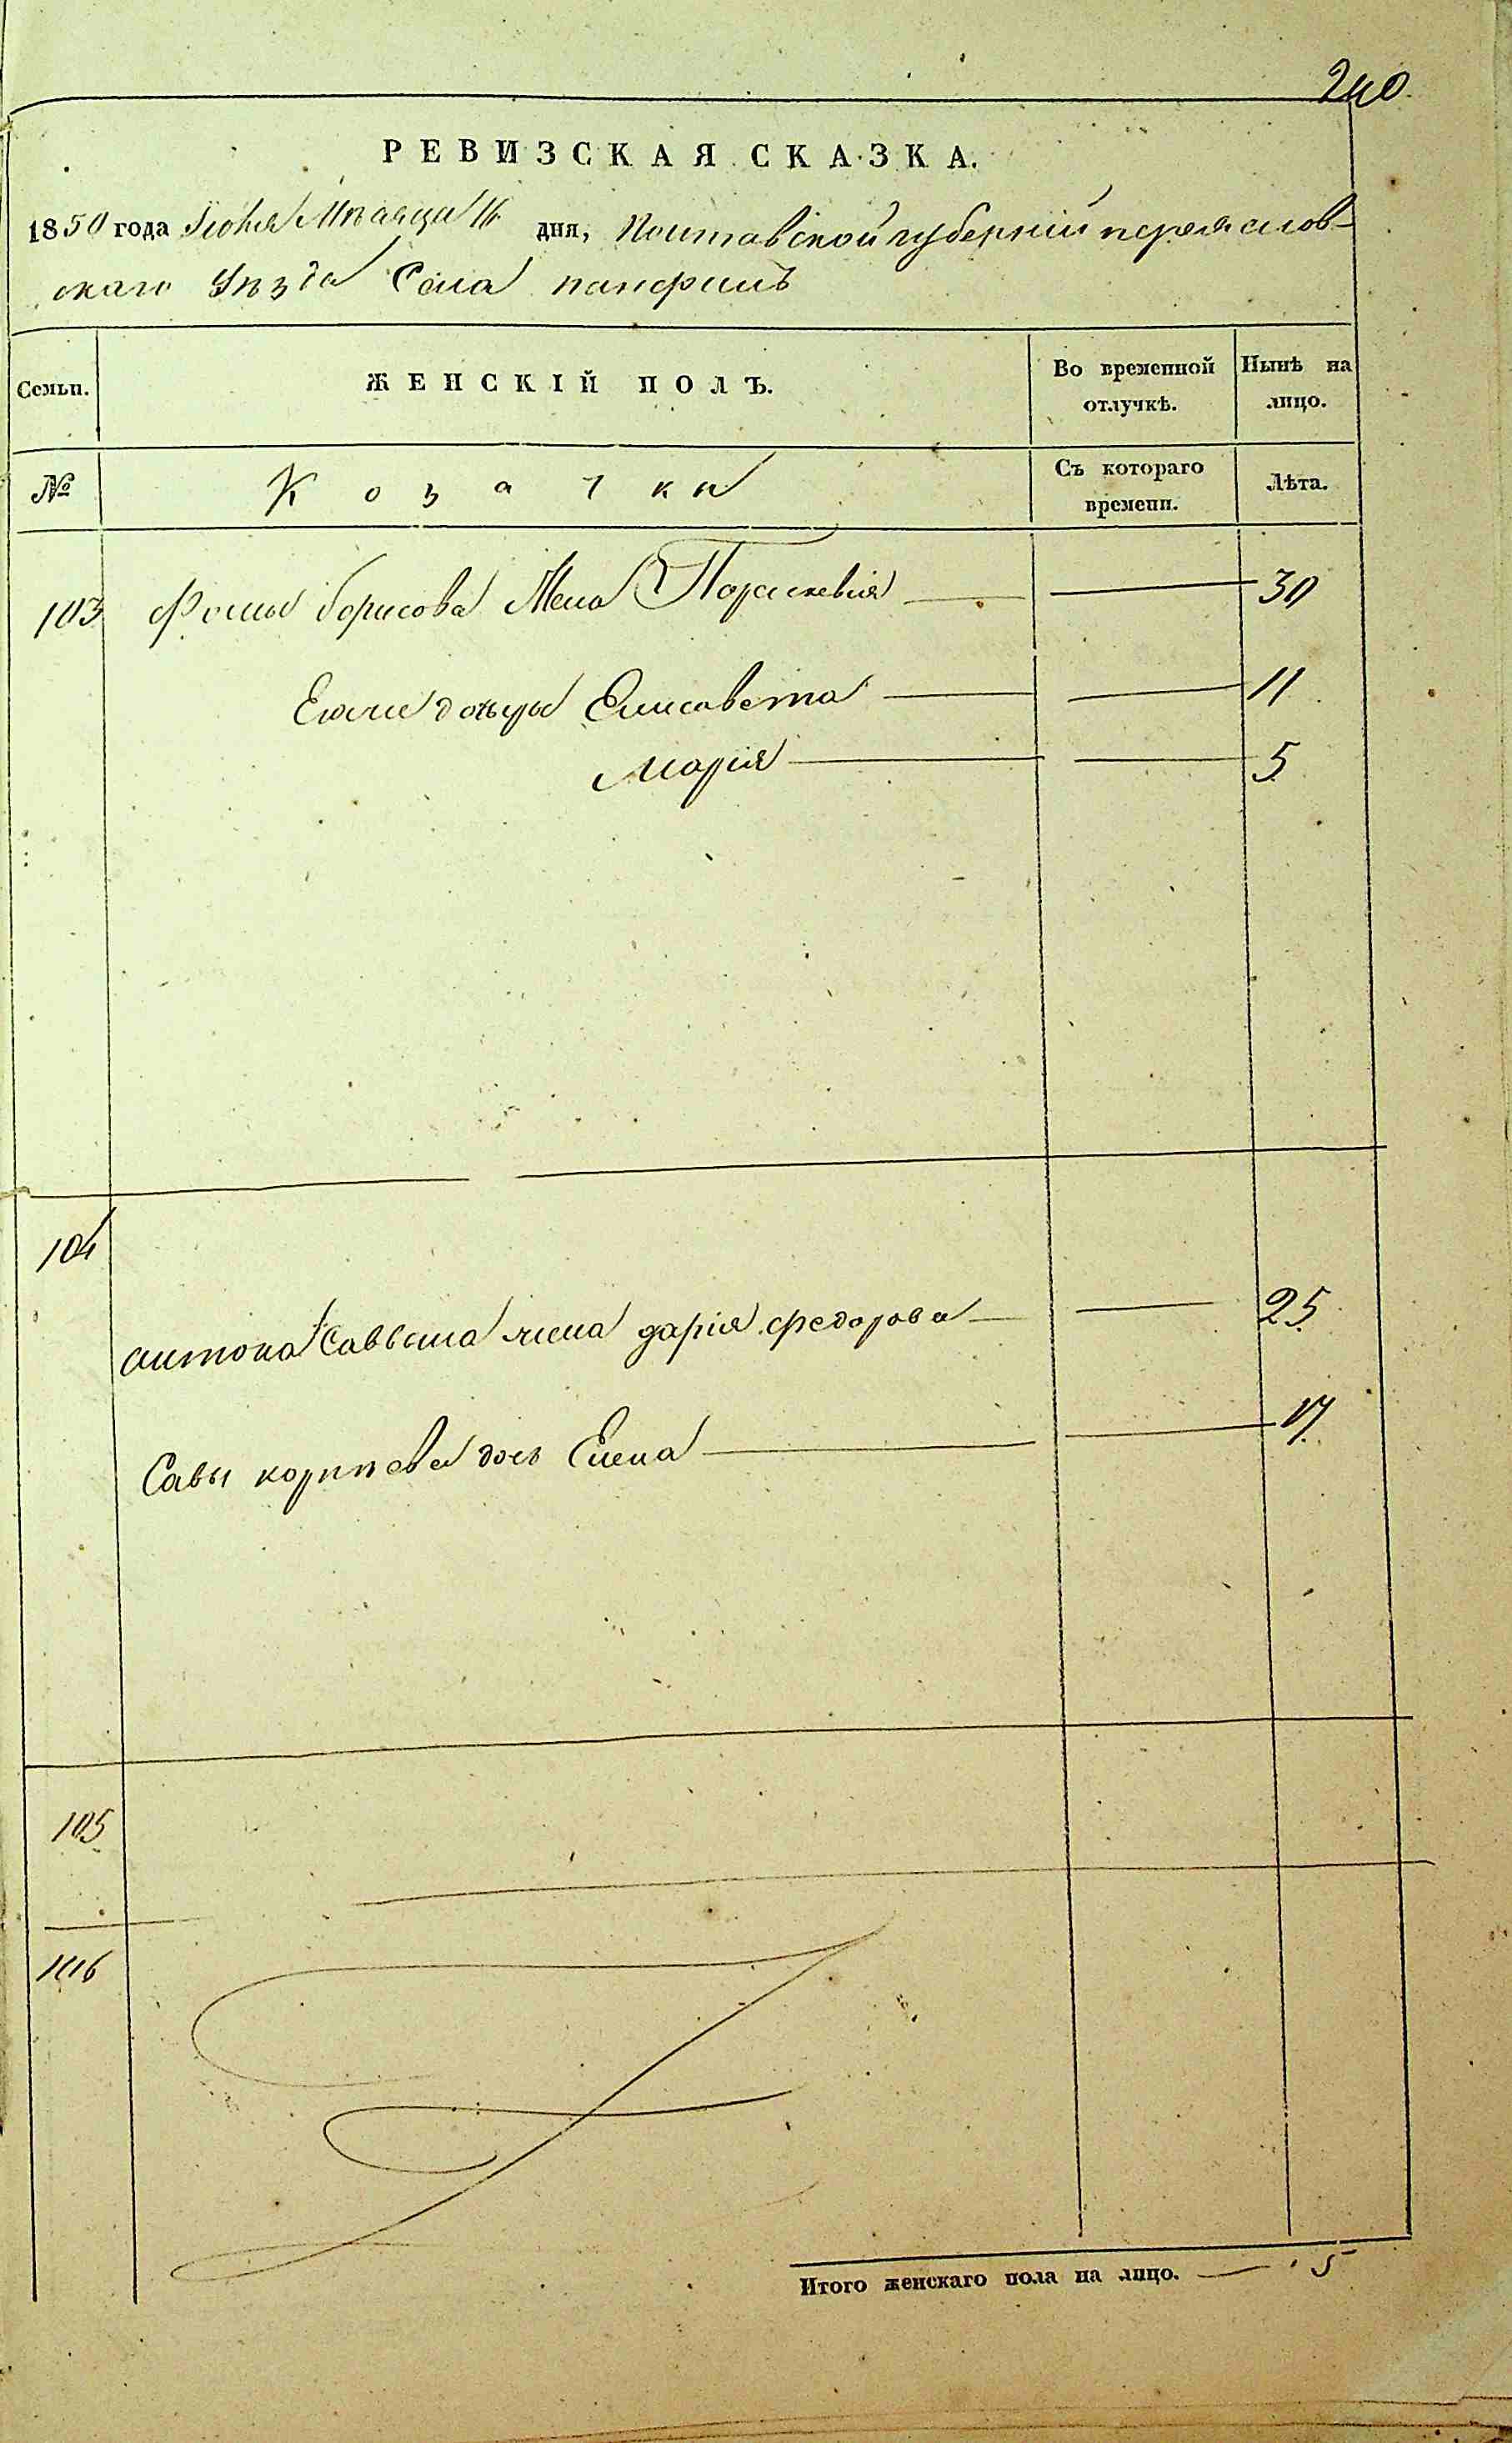 240
РЕВИЗСКАЯ СКАЗКА.
1850 года Июня Мѣсяца 16 дня, Полтавской губерніи переяслов-
скаго Уѣзда Села панфилъ
Семьи. ЖЕНСКІЙ ПОЛЪ. Во временной отлучкѣ. Нынѣ на лицо.
№ Козачки Съ котораго времени. Лѣта.
103 Фомы борисова Жена Параскевія 30
Его же дочери Елисавета 11
Марія 5
104
антона Саввина жена дарія федорова 25
Савы корнѣева дочь Елена 17
105
106
Итого женскаго пола на лицо. 5